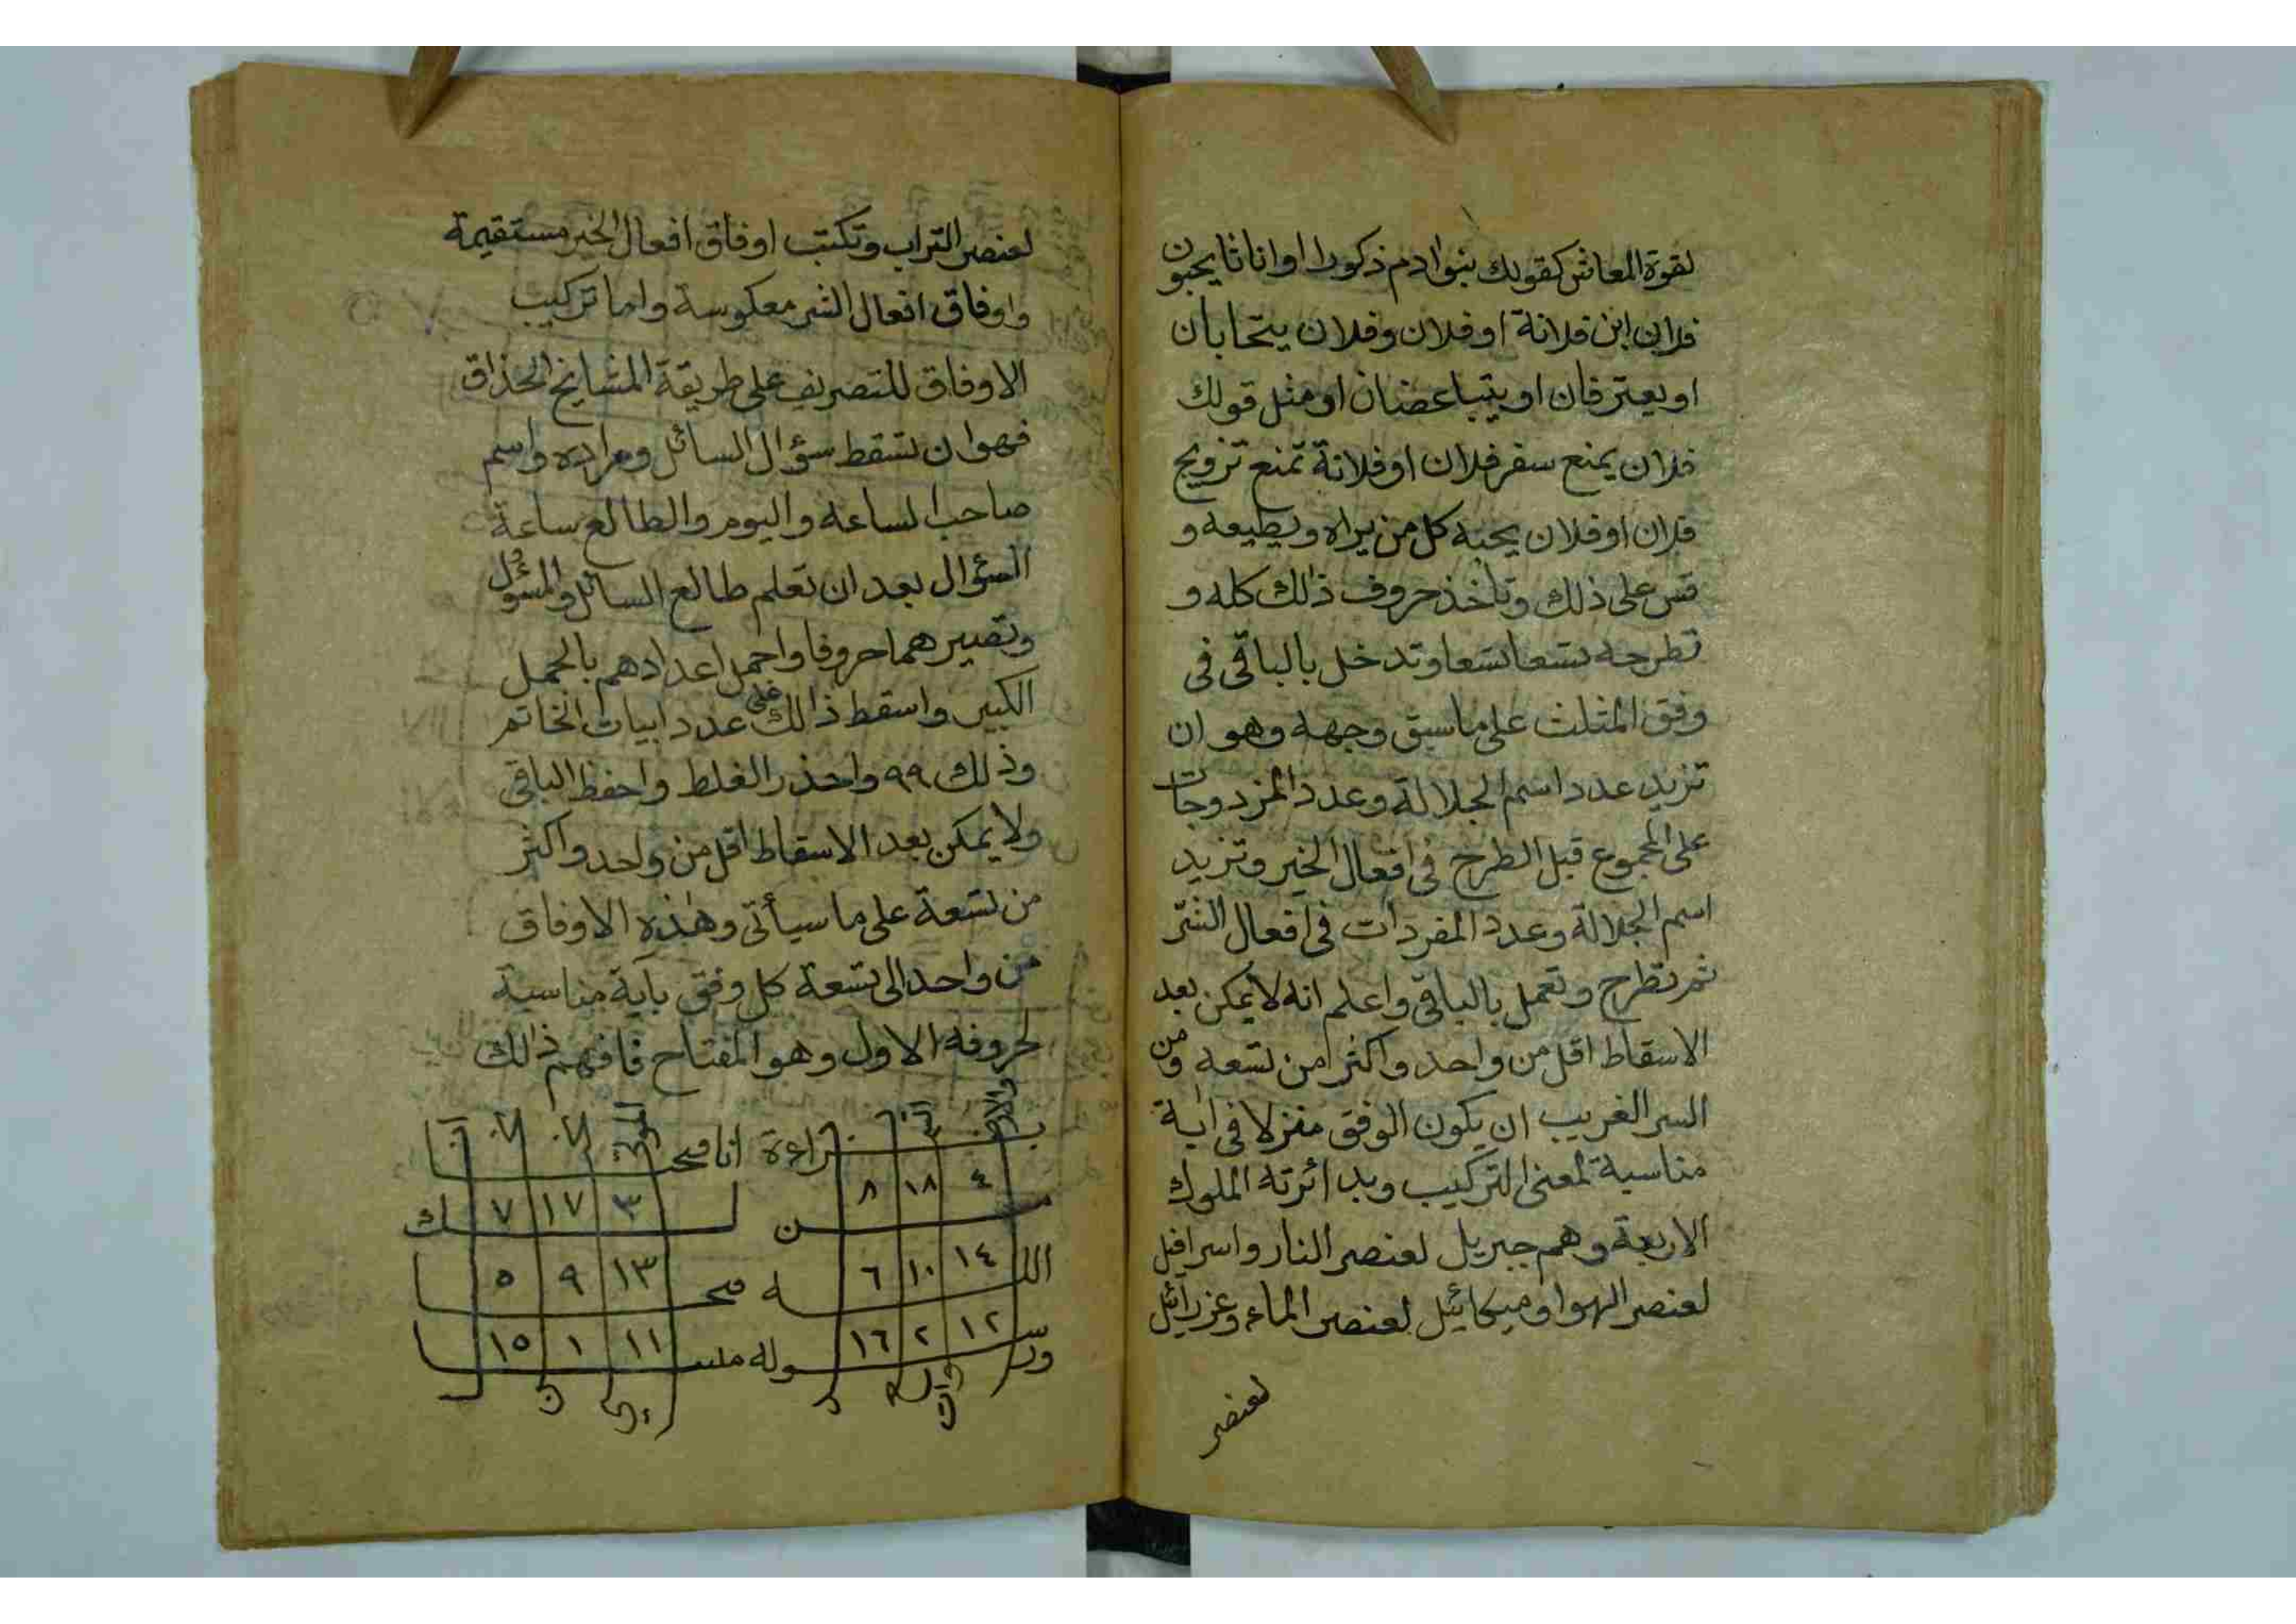 لقوة المعاش كقولك بنوا ادم ذكورا او اناثا يحبون
فلان ابن فلانة او فلان وفلان يتحابان
او يعترفان او يتباغضان او مثل قولك
فلان يمنع سفر فلان او فلانة تمنع تزويج
فلان او فلان يحبه كل من يراه ويطيعه و
قس على ذلك وتأخذ حروف ذالك كله و
تطرحه تسعا تسعا وتدخل بالباقى فى
وفق المثلث على ما سبق وجهه وهو ان
تزيد عدد اسم الجلالة وعدد المزدوجات
على المجموع قبل الطرح فى افعال الخير وتزيد
اسم الجلالة وعدد المفردات فى افعال الشر
ثم تطرح وتعمل بالباقى واعلم انه لا يمكن بعد
الاسقاط اقل من واحد واكثر من تسعه ومن
السر الغريب ان يكون الوفق منزلا فى اية
مناسبة لمعنى التركيب وبدائرته الملوك
الاربعة وهم جبريل لعنصر النار واسرافيل
لعنصر الهوا وميكائيل لعنصر الماء وعزرائيل
لعنصر
لعنصر التراب وتكتب اوفاق افعال الخير مستقيمة
واوفاق افعال الشر معكوسة واما تركيب
الاوفاق للتصريف على طريقة المشايخ الحذاق
فهو ان تسقط سؤال السائل ومراده واسم
صاحب الساعه واليوم والطالع ساعة
السؤال بعد ان تعلم طالع السائل والمسؤل
وتصيرهما حروفا واجمل اعدادهم بالجمل
الكبير واسقط ذالك على عدد ابيات الخاتم
وذلك ٩٩ واحذر الغلط واحفظ الباقى
ولا يمكن بعد الاسقاط اقل من واحد واكثر
من تسعة على ما سيأتى وهذه الاوفاق
من واحد الى تسعة كل وفق بآية مناسبة
لحروفه الاول وهو المفتاح فافهم ذالك
بـ راءة انا فتحـ نا
٤ ١٨ ٨ ٣ ١٧ ٧
مـ ـن لـ ـك
١٤ ١٠ ٦ ١٣ ٩ ٥
اللـ ـه فتحـ ـا
١٢ ٢ ١٦ ١١ ١ ١٥
ورسـ ـوله مبيـ ـنا